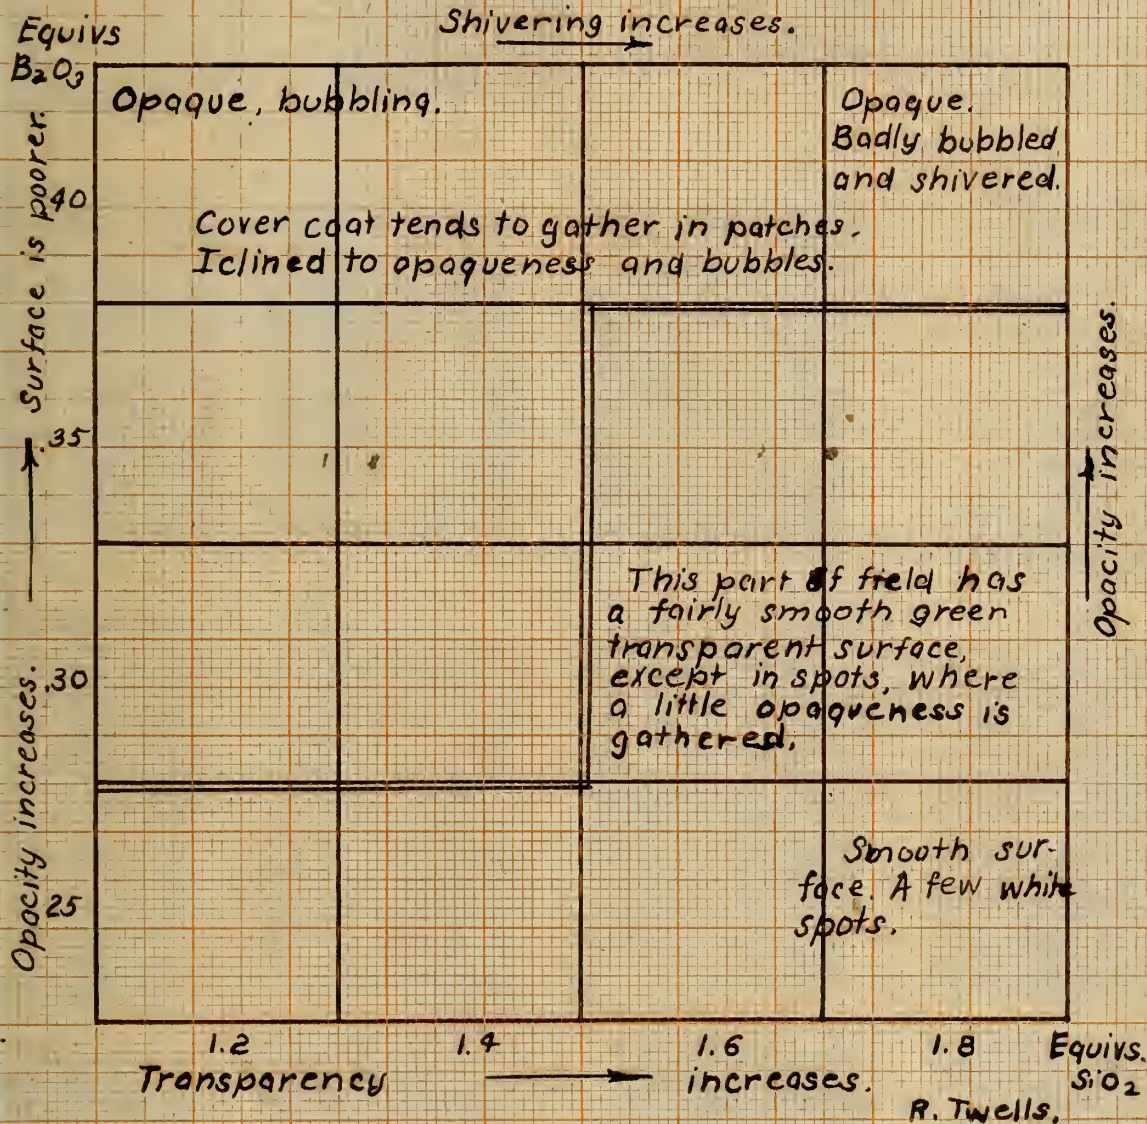 Shivering increases.
Equivs
B₂O₃
Opaque, bubbling.
Opaque.
Badly bubbled
and shivered.
.40
Cover coat tends to gather in patches.
Iclined to opaqueness and bubbles.
Surface is poorer.
.35
Opacity increases.
This part of field has
a fairly smooth green
transparent surface,
except in spots, where
a little opaqueness is
gathered.
.30
Opacity increases.
Smooth sur-
face. A few white
spots.
25
1.2 1.4 1.6 1.8 Equivs.
SiO₂
Transparency increases.
R. Twells.